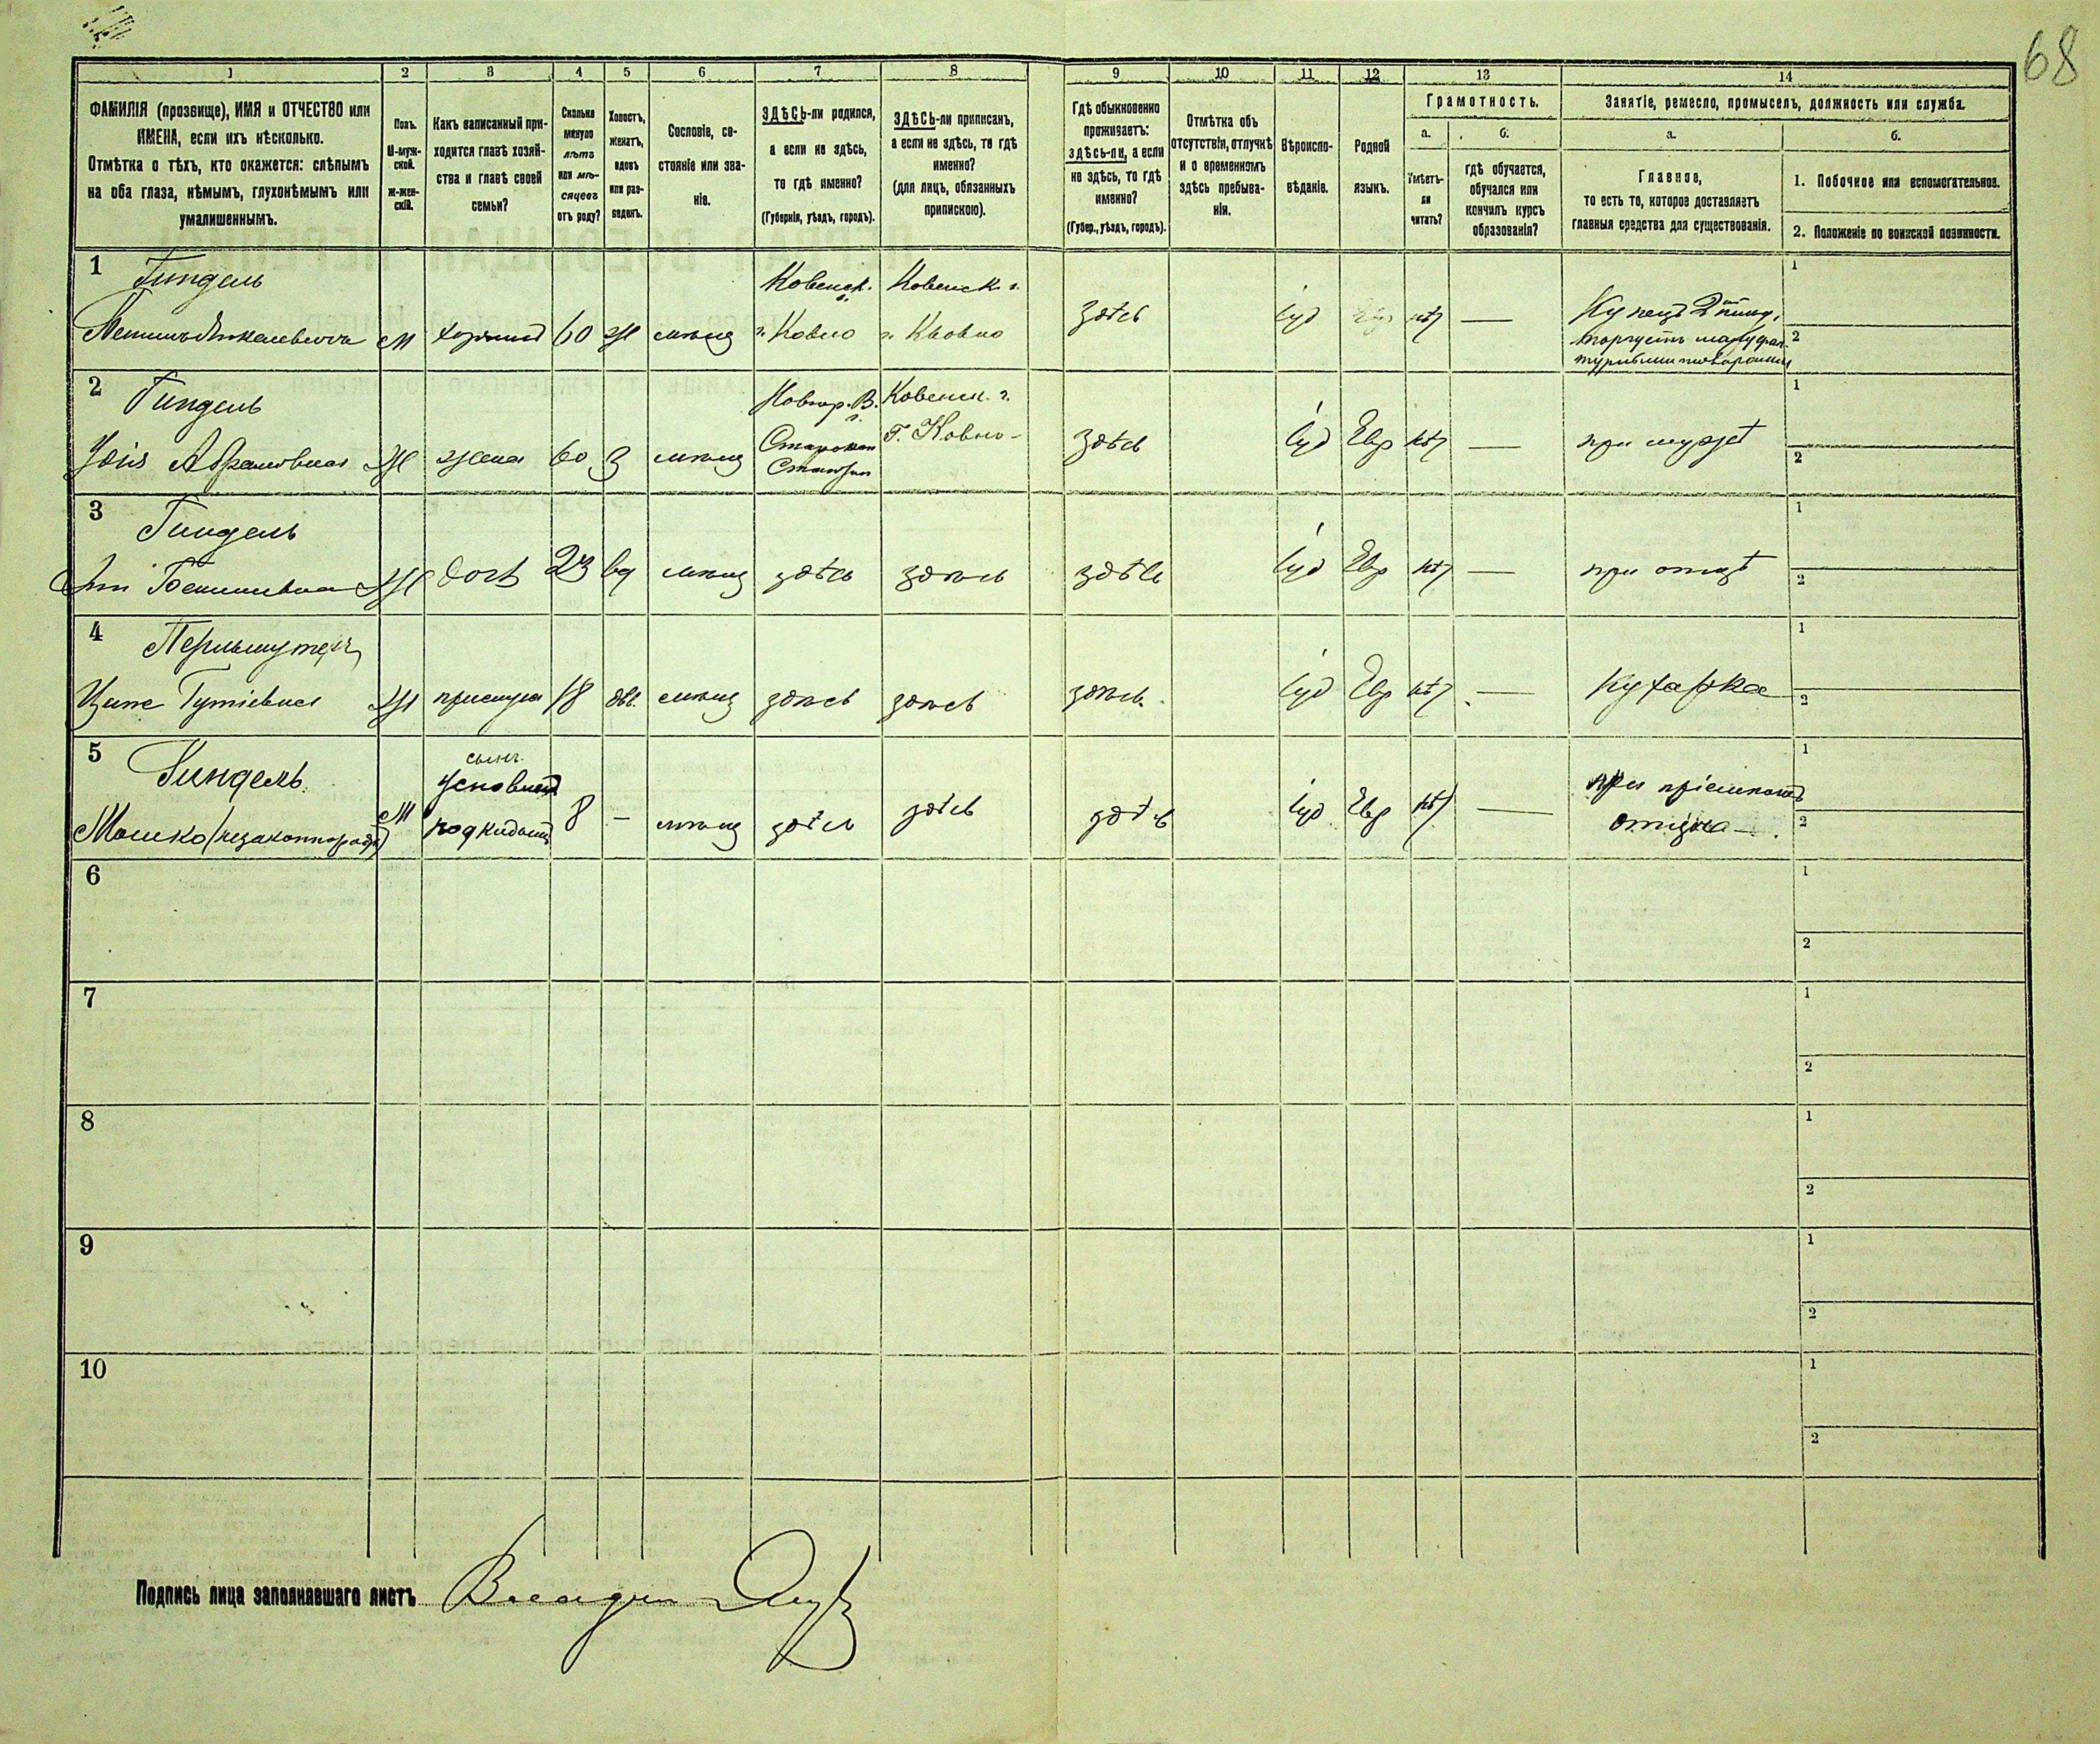 68
1 2 3 4 5 6 7 8 9 10 11 12 13 14
ФАМИЛІЯ (прозвище), ИМЯ и ОТЧЕСТВО или
ИМЕНА, если ихъ нѣсколько.
Отмѣтка о тѣхъ, кто окажется: слѣпымъ
на оба глаза, нѣмымъ, глухонѣмымъ или
умалишеннымъ.
Полъ.
М-муж-
ской.
Ж-жен-
скій.
Какъ записанный при-
ходится главѣ хозяй-
ства и главѣ своей
семьи?
Сколько
минуло
лѣтъ
или мѣ-
сяцевъ
отъ роду?
Холостъ,
женатъ,
вдовъ
или раз-
веденъ.
Сословіе, со-
стояніе или зва-
ніе.
ЗДѢСЬ-ли родился,
а если не здѣсь,
то гдѣ именно?
(Губернія, уѣздъ, городъ).
ЗДѢСЬ-ли приписанъ,
а если не здѣсь, то гдѣ
именно?
(для лицъ, обязанныхъ
припискою).
Гдѣ обыкновенно
проживаетъ:
здѣсь-ли, а если
не здѣсь, то гдѣ
именно?
(Губер., уѣздъ, городъ).
Отмѣтка объ
отсутствіи, отлучкѣ
и о временномъ
здѣсь пребыва-
ніи.
Вѣроиспо-
вѣданіе.
Родной
языкъ.
Грамотность.
а. б.
Умѣетъ-
ли
читать?
гдѣ обучается,
обучался или
кончилъ курсъ
образованія?
Занятіе, ремесло, промыселъ, должность или служба.
а. б.
Главное,
то есть то, которое доставляетъ
главныя средства для существованія.
1. Побочное или вспомогательное.
2. Положеніе по воинской повинности.
1 Гиндель Ковенск. г. Ковенск. г. 1
м хозяинъ 60 ж мѣщ г. Ковно г. Ковно здѣсь Іуд Евр нѣт — Купецъ 2й гильд.
торгуетъ мануфак- 2
турными товарами
2 Гиндель Ковенск. г. 1
Абрамовна Ж жена 60 З мѣщ Г. Ковно здѣсь Іуд Евр нѣт — при мужѣ 2
3 Гиндель 1
Ж дочь 23 вд мѣщ здѣсь здѣсь здѣсь Іуд Евр нѣт — при отцѣ 2
4 Перльмутеръ 1
Ж прислуга 18 дѣв. мѣщ здѣсь здѣсь здѣсь Іуд Евр нѣт — Кухарка 2
5 Гиндель сынъ 1
Мошко (незаконнорожд) М подкидышъ 8 — мѣщ здѣсь здѣсь здѣсь Іуд Евр нѣт — при пріемномъ
отцѣ 2
6 1
2
7 1
2
8 1
2
9 1
2
10 1
2
Подпись лица заполнявшаго листъ